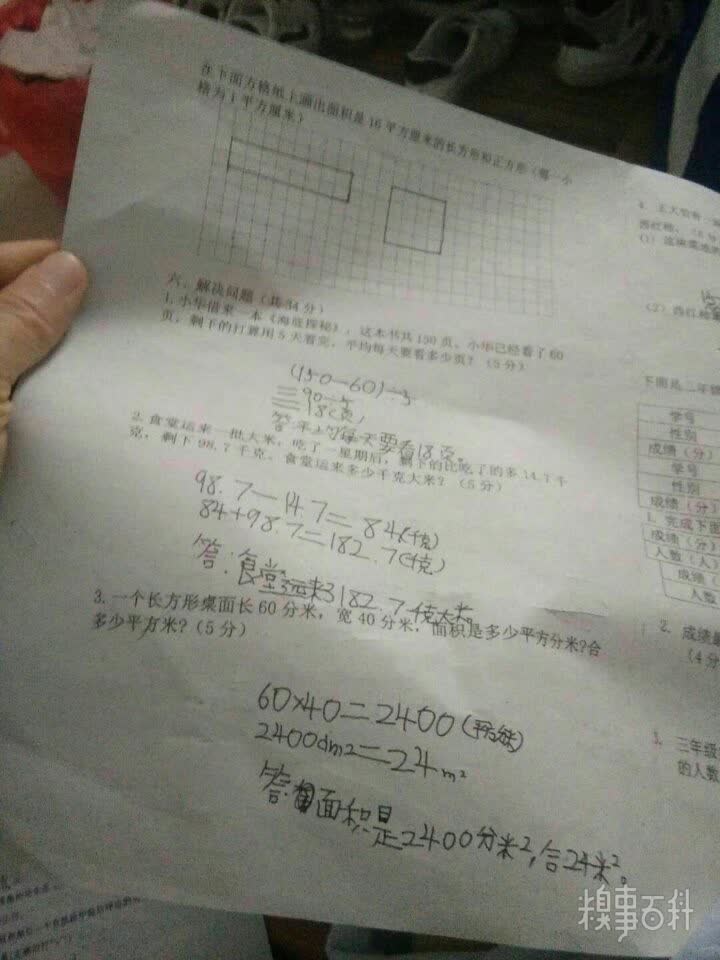 在下面方格纸上画出面积是16平方厘米的长方形和正方形（每一小
格为1平方厘米）
六、解决问题（共34分）
1.小华借来一本《海底探秘》，这本书共150页，小华已经看了60
页，剩下的打算用5天看完，平均每天要看多少页？（5分）
(150-60)÷5
=90÷5
=18(页)
答:平均每天要看18页。
2.食堂运来一批大米，吃了一星期后，剩下的比吃了的多14.7千
克，剩下98.7千克。食堂运来多少千克大米？（5分）
98.7-14.7=84(千克)
84+98.7=182.7(千克)
答:食堂运来182.7千克大米。
3.一个长方形桌面长60分米，宽40分米，面积是多少平方分米?合
多少平方米?（5分）
60×40=2400
2400dm2=24m²
答:面积是2400分米²,合24米²。
4.王大爷有一
西红柿，
(1)这块菜地的
(2)西红柿
下面是二年级
学号
性别
成绩（分）
学号
性别
成绩（分）
1.完成下面
成绩（分）
人数（人）
成绩（
人数
2.成绩最
（4分
3.三年级
的人数
糗事百科